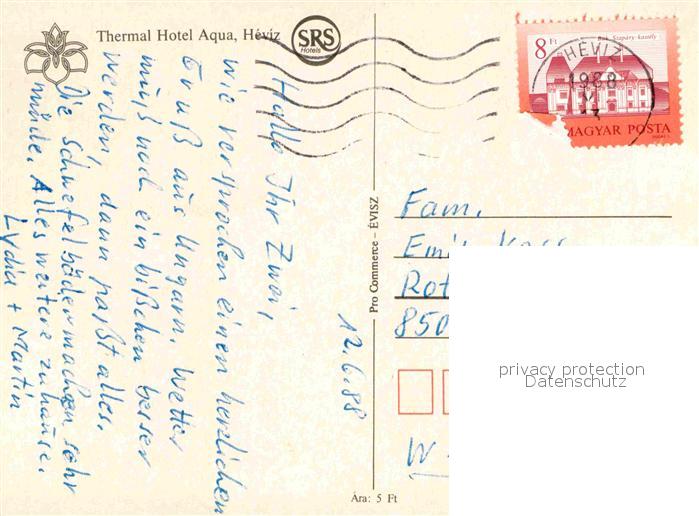 Thermal Hotel Aqua, Hévíz
SRS
Hotels
8 Ft
Bük, Szapáry-kastély
HÉVÍZ
1988
MAGYAR POSTA
12.6.88
Hallo Ihr Zwei,
wie versprochen einen herzlichen
Gruß aus Ungarn. Wetter
muß noch ein bißchen besser
werden, dann paßt alles.
Die Schwefelbäder machen sehr
müde. Alles weitere zuhause.
Lydia + Martin
Pro Commerce – ÉVISZ
Fam.
Rot
850
W
privacy protection
Datenschutz
Ára: 5 Ft